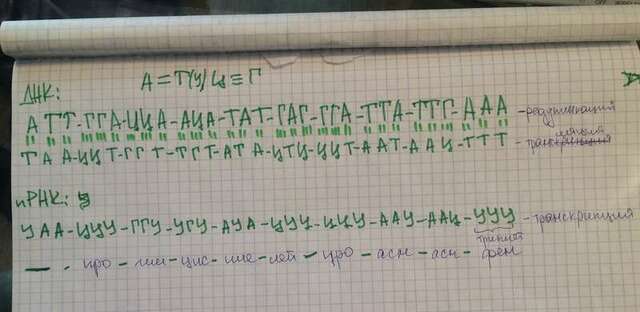 ДНК: А = Т(У) Ц ≡ Г
АТТ-ГГА-ЦЦА-АЦА-ТАТ-ГАГ-ГГА-ТТА-ТТГ-ААА - редупликация
ТАА-ЦЦТ-ГГТ-ТГТ-АТА-ЦТЦ-ЦЦТ-ААТ-ААЦ-ТТТ -
иРНК:
УАА-ЦЦУ-ГГУ-УГУ-АУА-ЦУЦ-ЦЦУ-ААУ-ААЦ-УУУ - транскрипция
триплет
— - про - гли - цис - иле - лей - про - асн - асн - фен